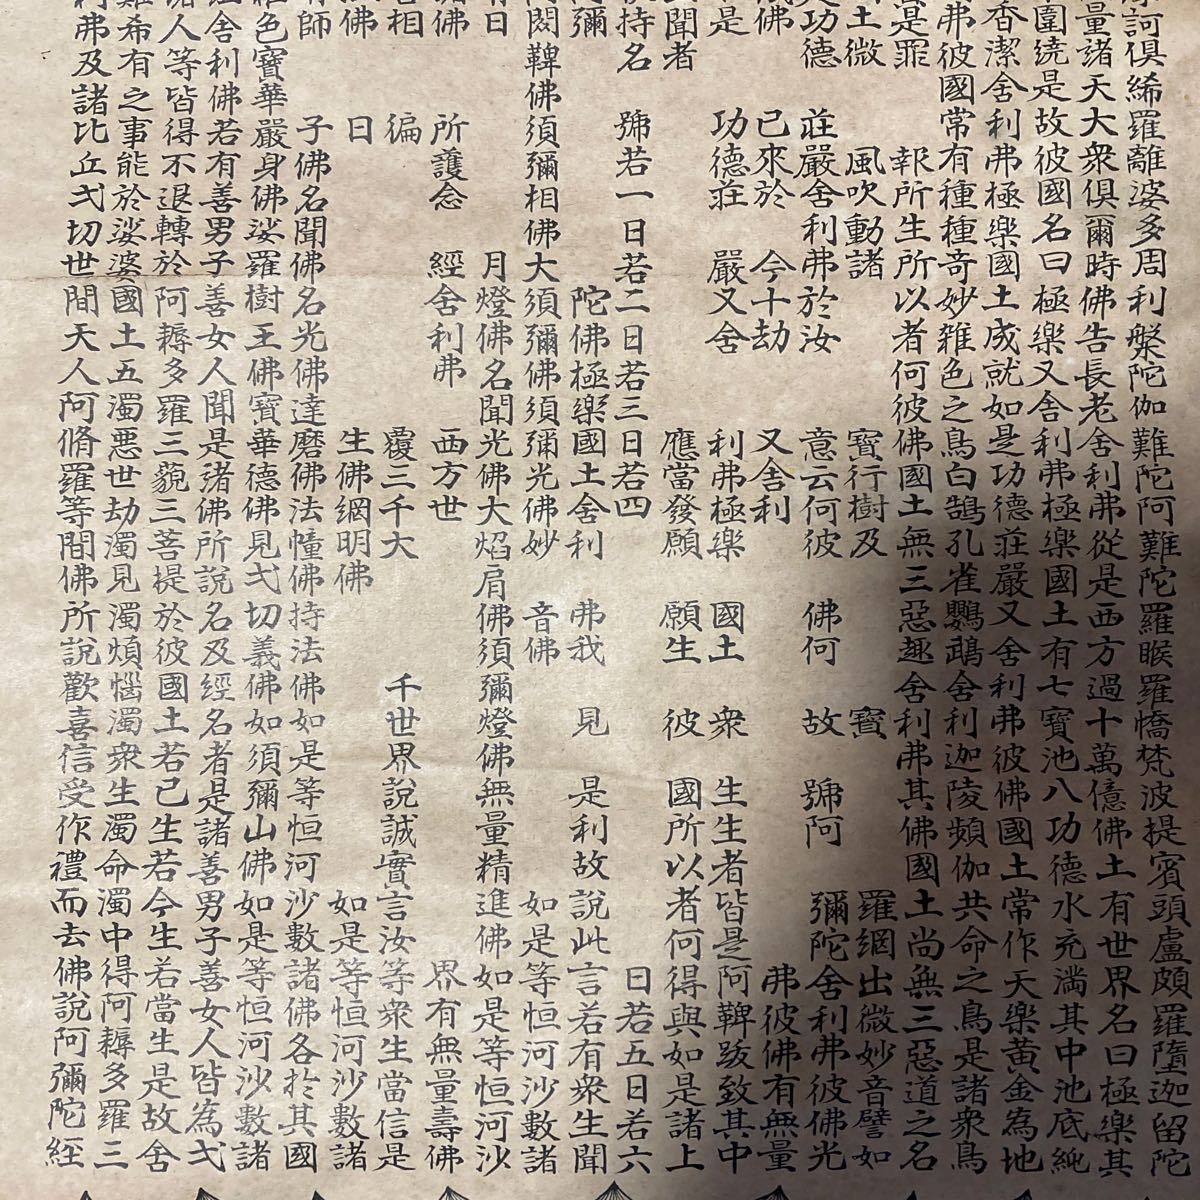 訶俱絺羅離婆多周利槃陀伽難陀阿難陀羅睺羅憍梵波提賓頭盧頗羅墮迦留陀
量諸天大衆俱爾時佛告長老舍利弗從是西方過十萬億佛土有世界名曰極樂其
圍繞是故彼國名曰極樂又舍利弗極樂國土有七寶池八功德水充滿其中池底純
香潔舍利弗極樂國土成就如是功德莊嚴又舍利弗彼佛國土常作天樂黃金為地
弗彼國常有種種奇妙雜色之鳥白鵠孔雀鸚鵡舍利迦陵頻伽共命之鳥是諸衆鳥
是罪 報所生所以者何彼佛國土無三惡趣舍利弗其佛國土尚無三惡道之名
土微 風吹動諸 寶行樹及 寶 羅網出微妙音譬如
功德 莊嚴舍利弗於汝 意云何彼 佛何 故 號阿 彌陀舍利弗彼佛光
佛 已來於 今十劫 又舍利 弗彼佛有無量
是 功德莊 嚴又舍 利弗極樂 國土 衆 生生者皆是阿鞞跋致其中
聞者 應當發願 願生 彼 國所以者何得與如是諸上
持名 號若一日若二日若三日若四 日若五日若六
彌 陀佛極樂國土舍利 弗我 見 是利故說此言若有衆生聞
閦鞞佛須彌相佛大須彌佛須彌光佛妙 音佛 如是等恒河沙數諸
日 月燈佛名聞光佛大焰肩佛須彌燈佛無量精進佛如是等恒河沙
佛 所護念 經舍利弗 西方世 界有無量壽佛
相 徧 覆三千大 千世界說誠實言汝等衆生當信是
佛 日 生佛網明佛 如是等恒河沙數諸
師 子佛名聞佛名光佛達磨佛法幢佛持法佛如是等恒河沙數諸佛各於其國
色寶華嚴身佛娑羅樹王佛寶華德佛見弌切義佛如須彌山佛如是等恒河沙數諸
舍利佛若有善男子善女人聞是諸佛所說名及經名者是諸善男子善女人皆為弌
人等皆得不退轉於阿耨多羅三藐三菩提於彼國土若已生若今生若當生是故舍
希有之事能於娑婆國土五濁惡世劫濁見濁煩惱濁衆生濁命濁中得阿耨多羅三
弗及諸比丘弌切世間天人阿脩羅等聞佛所說歡喜信受作禮而去佛說阿彌陀經